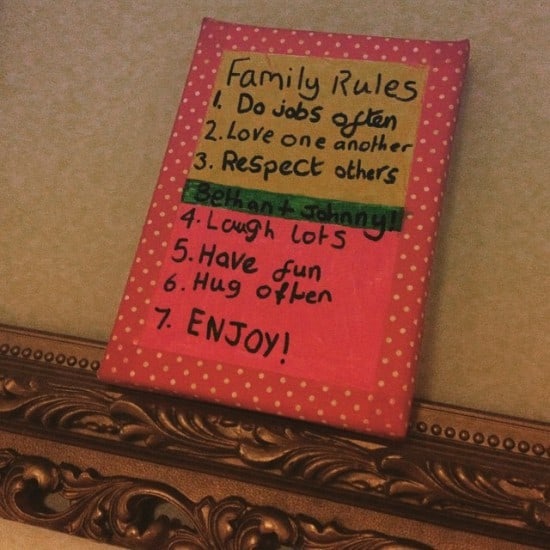 Family Rules
1. Do jobs often
2. Love one another
3. Respect others
Bethan + Johnny!
4. Laugh lots
5. Have fun
6. Hug often
7. ENJOY!